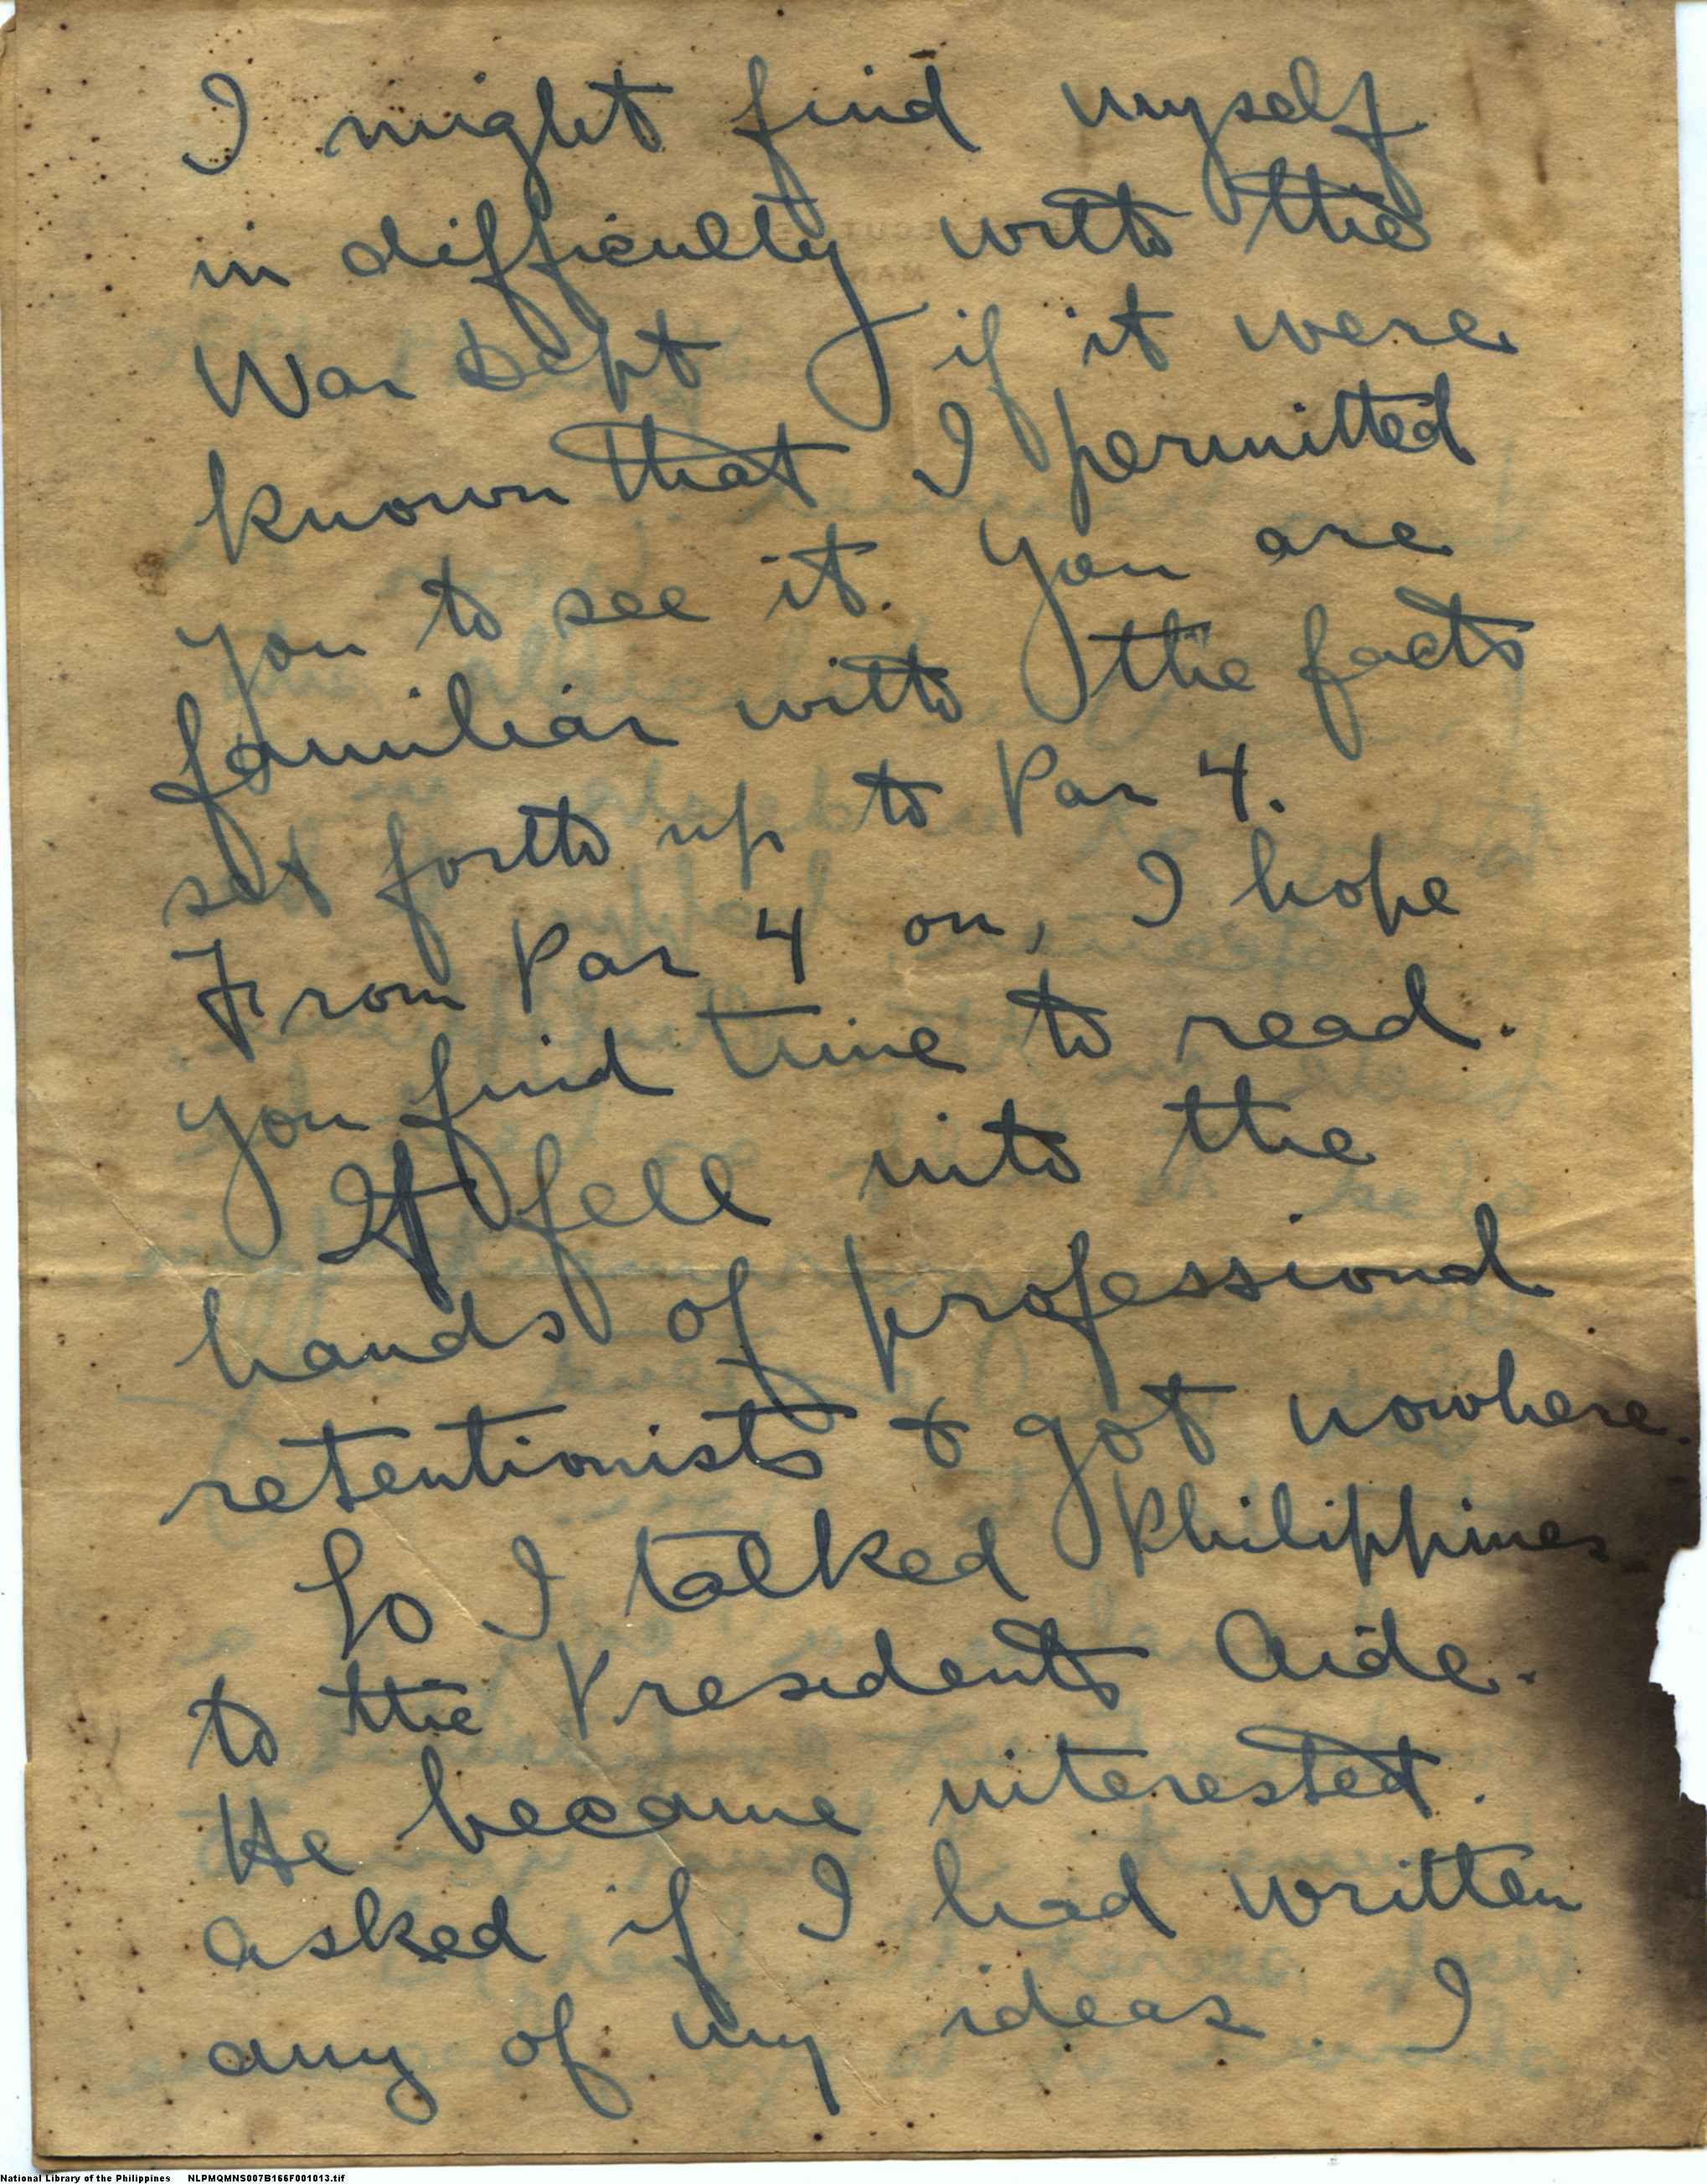 I might find myself
in difficulty with the
War Dept if it were
known that I permitted
you to see it. You are
familiar with the facts
set forth up to Par 4.
From Par 4 on, I hope
you find time to read.
It fell into the
hands of professional
retentionists & got nowhere.
So I talked Philippines
to the Presidents Aide.
He became interested.
asked if I had written
any of my ideas. I
National Library of the Philippines NLPMQMNS007B166F001013.tif